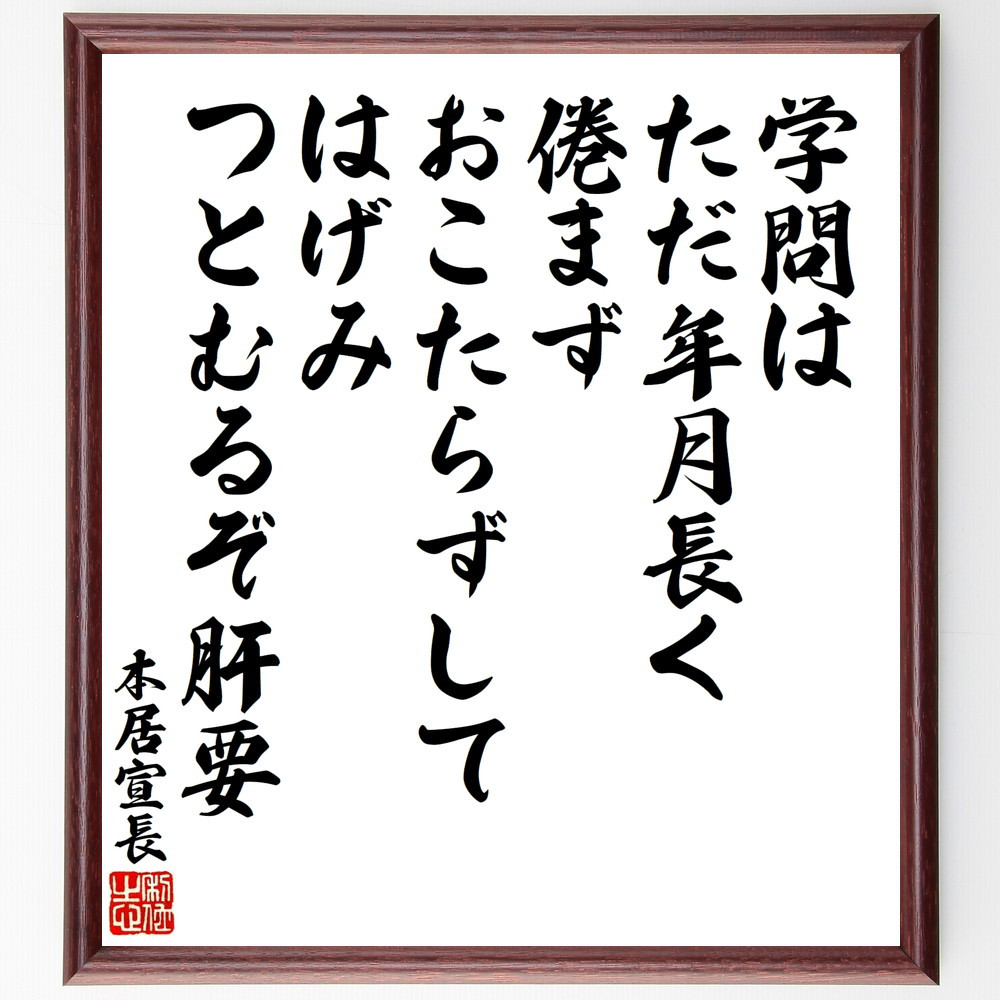 学問は
ただ年月長く
倦まず
おこたらずして
はげみ
つとむるぞ肝要
本居宣長